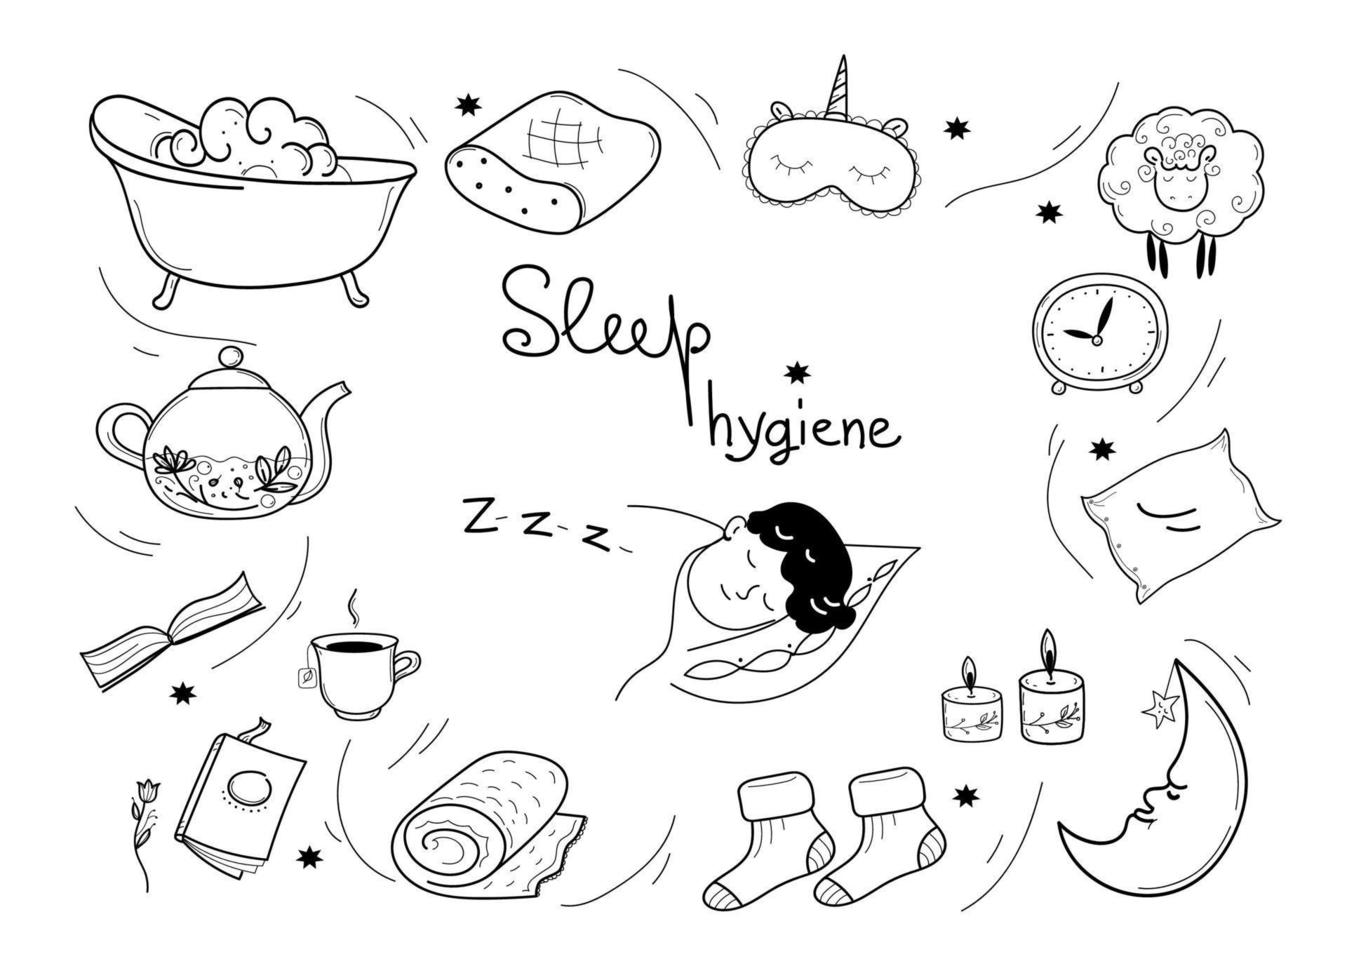 Sleep
hygiene
z z z